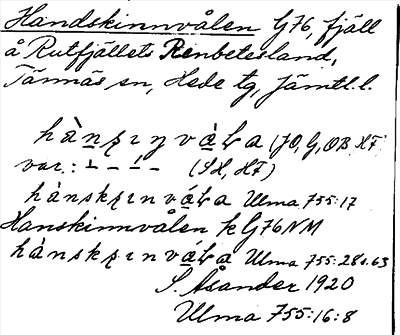 Handskinnvålen G76, fjäll
å Rutfjällets Renbetesland,
Tännäs sn, Hede tg, Jämtl. l.
hànʂɪŋvàLa (JO, G, OB HF
var.: ⊥ – ⊥ – (SH, HF)
hànskɪnvàLa Ulma 755:17
Hanskinnvålen k G76NM
hànskɪnvàLa Ulma 755:28 s. 63
S. Åsander 1920
Ulma 755:16:8